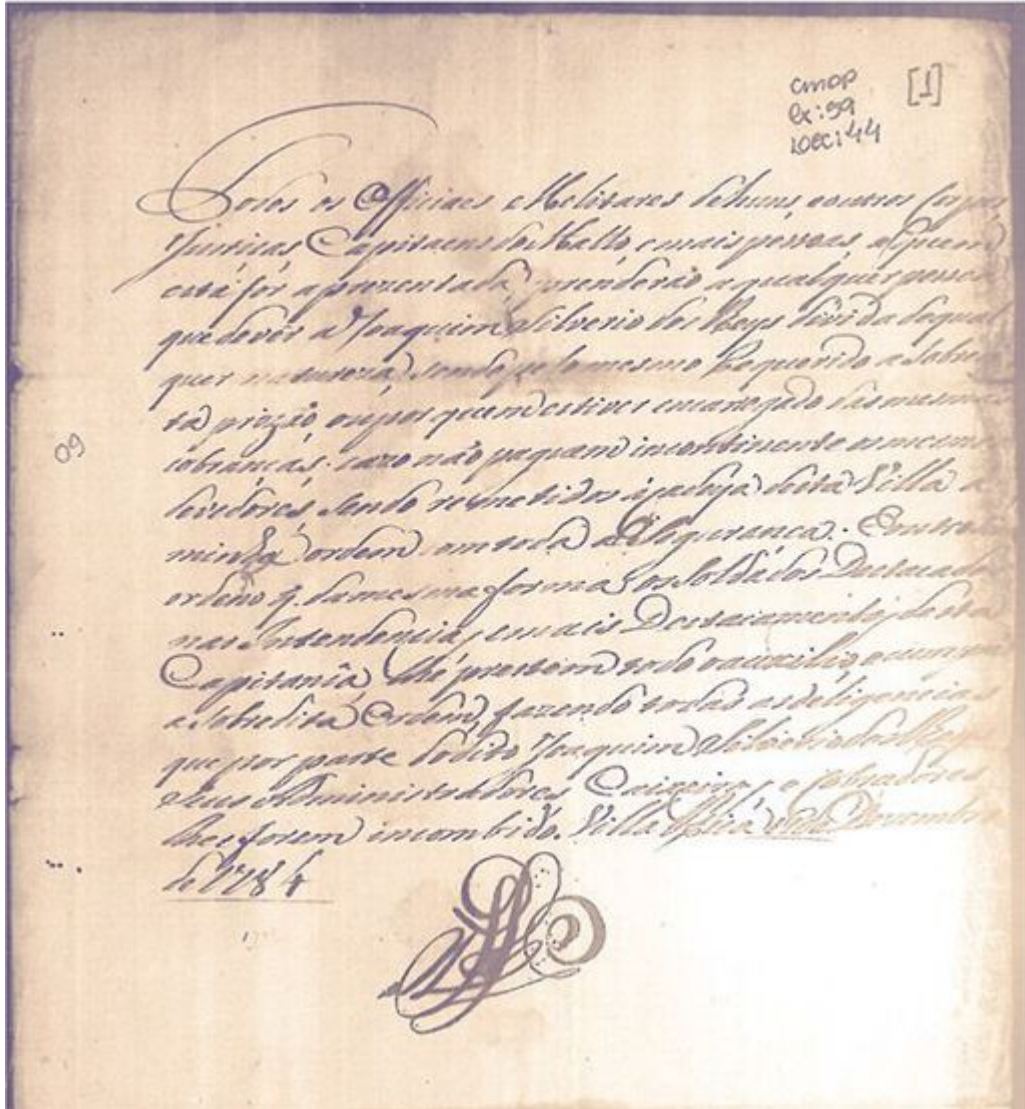 cmop [1]
cx: 59
Doc: 44
Todos os Officiaes e Melitares de huns, e outros Corpos
Justiças Capitaens do Matto, e mais pessoas, a quem
esta fôr aprezentada, prenderão a qualquer pessoa
que dever a Joaquim Silverio dos Reys divida de qual
quer natureza, sendo pelo mesmo Requerido a sobredi
ta prizão, ou por quem estiver encarregado das mesmas
cobranças, cazo não paguem incontinente os mesmos
devedores, sendo remetidos á cadeya desta Villa a
minha ordem com toda a Segurança. E outro sim
ordeno q. da mesma forma os Soldados Destacados
nas Intendencias, e mais Destacamentos desta
Capitania lhe prestem todo o auxilio, e cumprão
a sobredita Ordem, fazendo todas as deligencias
que por parte do dito Joaquim Silverio dos Reys
seus Administradores Caixeiros, e Cobradores
lhes forem incombido. Villa Rica de Dezembro
de 1784
09